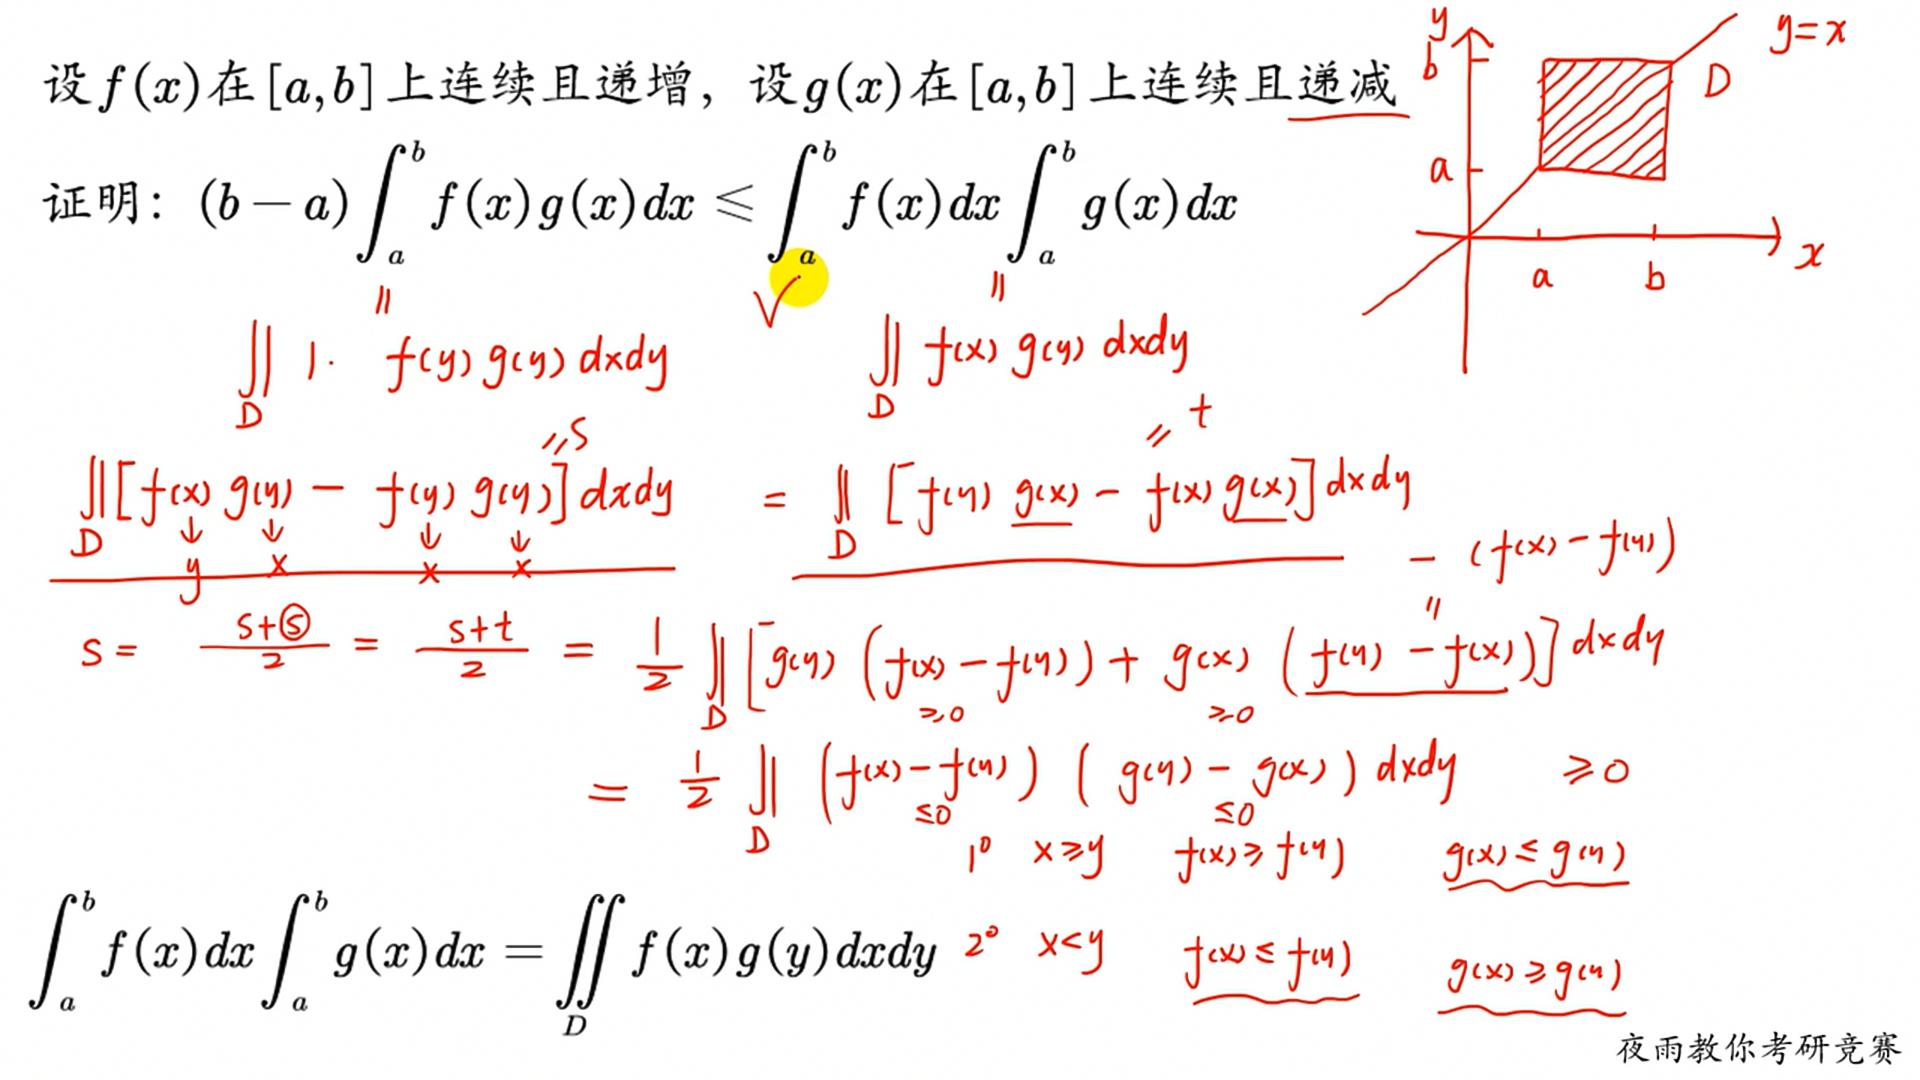 设f(x)在[a,b]上连续且递增，设g(x)在[a,b]上连续且递减
证明：(b−a)∫_a^b f(x)g(x)dx ⩽ ∫_a^b f(x)dx∫_a^b g(x)dx
y
b
a
a b
x
D
y=x
= √ =
∬_D 1· f(y)g(y)dxdy ∬_D f(x)g(y)dxdy
=s = t
∬_D [f(x)g(y) − f(y)g(y)]dxdy = ∬_D [f(y)g(x) − f(x)g(x)]dxdy
↓ ↓ ↓ ↓
y x x x
−(f(x)−f(y))
=
s = (s+s)/2 = (s+t)/2 = 1/2 ∬_D [g(y)(f(x)−f(y)) + g(x)(f(y)−f(x))]dxdy
≥0 ≥0
= 1/2 ∬_D (f(x)−f(y))(g(y)−g(x))dxdy ≥0
≤0 ≤0
1° x≥y f(x)≥f(y) g(x)≤g(y)
2° x<y f(x)≤f(y) g(x)≥g(y)
∫_a^b f(x)dx∫_a^b g(x)dx = ∬_D f(x)g(y)dxdy
夜雨教你考研竞赛